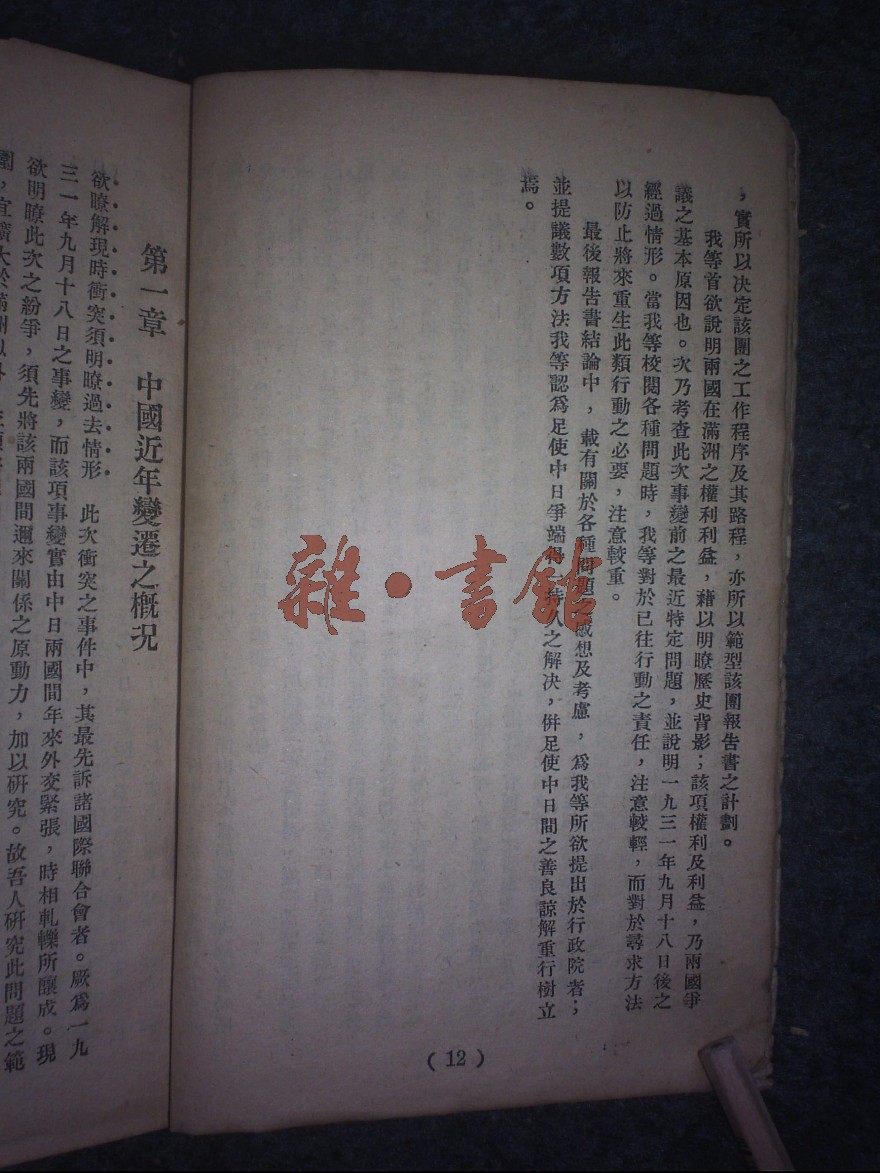 ，實所以決定該團之工作程序及其路程，亦所以範型該團報告書之計劃。
我等首欲說明兩國在滿洲之權利利益，藉以明瞭歷史背影；該項權利及利益，乃兩國爭
議之基本原因也。次乃考查此次事變前之最近特定問題，並說明一九三一年九月十八日後之
經過情形。當我等校閱各種問題時，我等對於已往行動之責任，注意較輕，而對於尋求方法
以防止將來重生此類行動之必要，注意較重。
最後報告書結論中，載有關於各種問題之感想及考慮，爲我等所欲提出於行政院者；
並提議數項方法我等認爲足使中日爭端得 持久之解決，併足使中日間之善良諒解重行樹立
焉。
(12)
雜·書館
第一章 中國近年變遷之概況
欲瞭解現時衝突須明瞭過去情形 此次衝突之事件中，其最先訴諸國際聯合會者。厥爲一九
三一年九月十八日之事變，而該項事變實由中日兩國間年來外交緊張，時相軋轢所釀成。現
欲明瞭此次之紛爭，須先將該兩國間邇來關係之原動力，加以研究。故吾人研究此問題之範
圍，宜擴大於滿洲以外